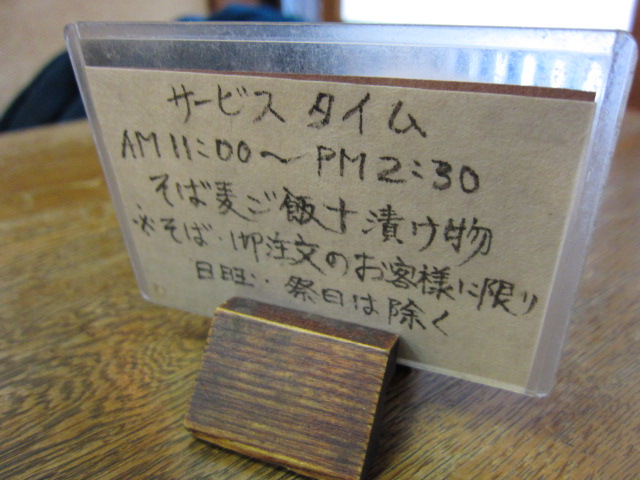 サービス タイム
AM 11:00～PM 2:30
そば麦ご飯十漬け物
※そば・御注文のお客様に限り
日曜・祭日は除く